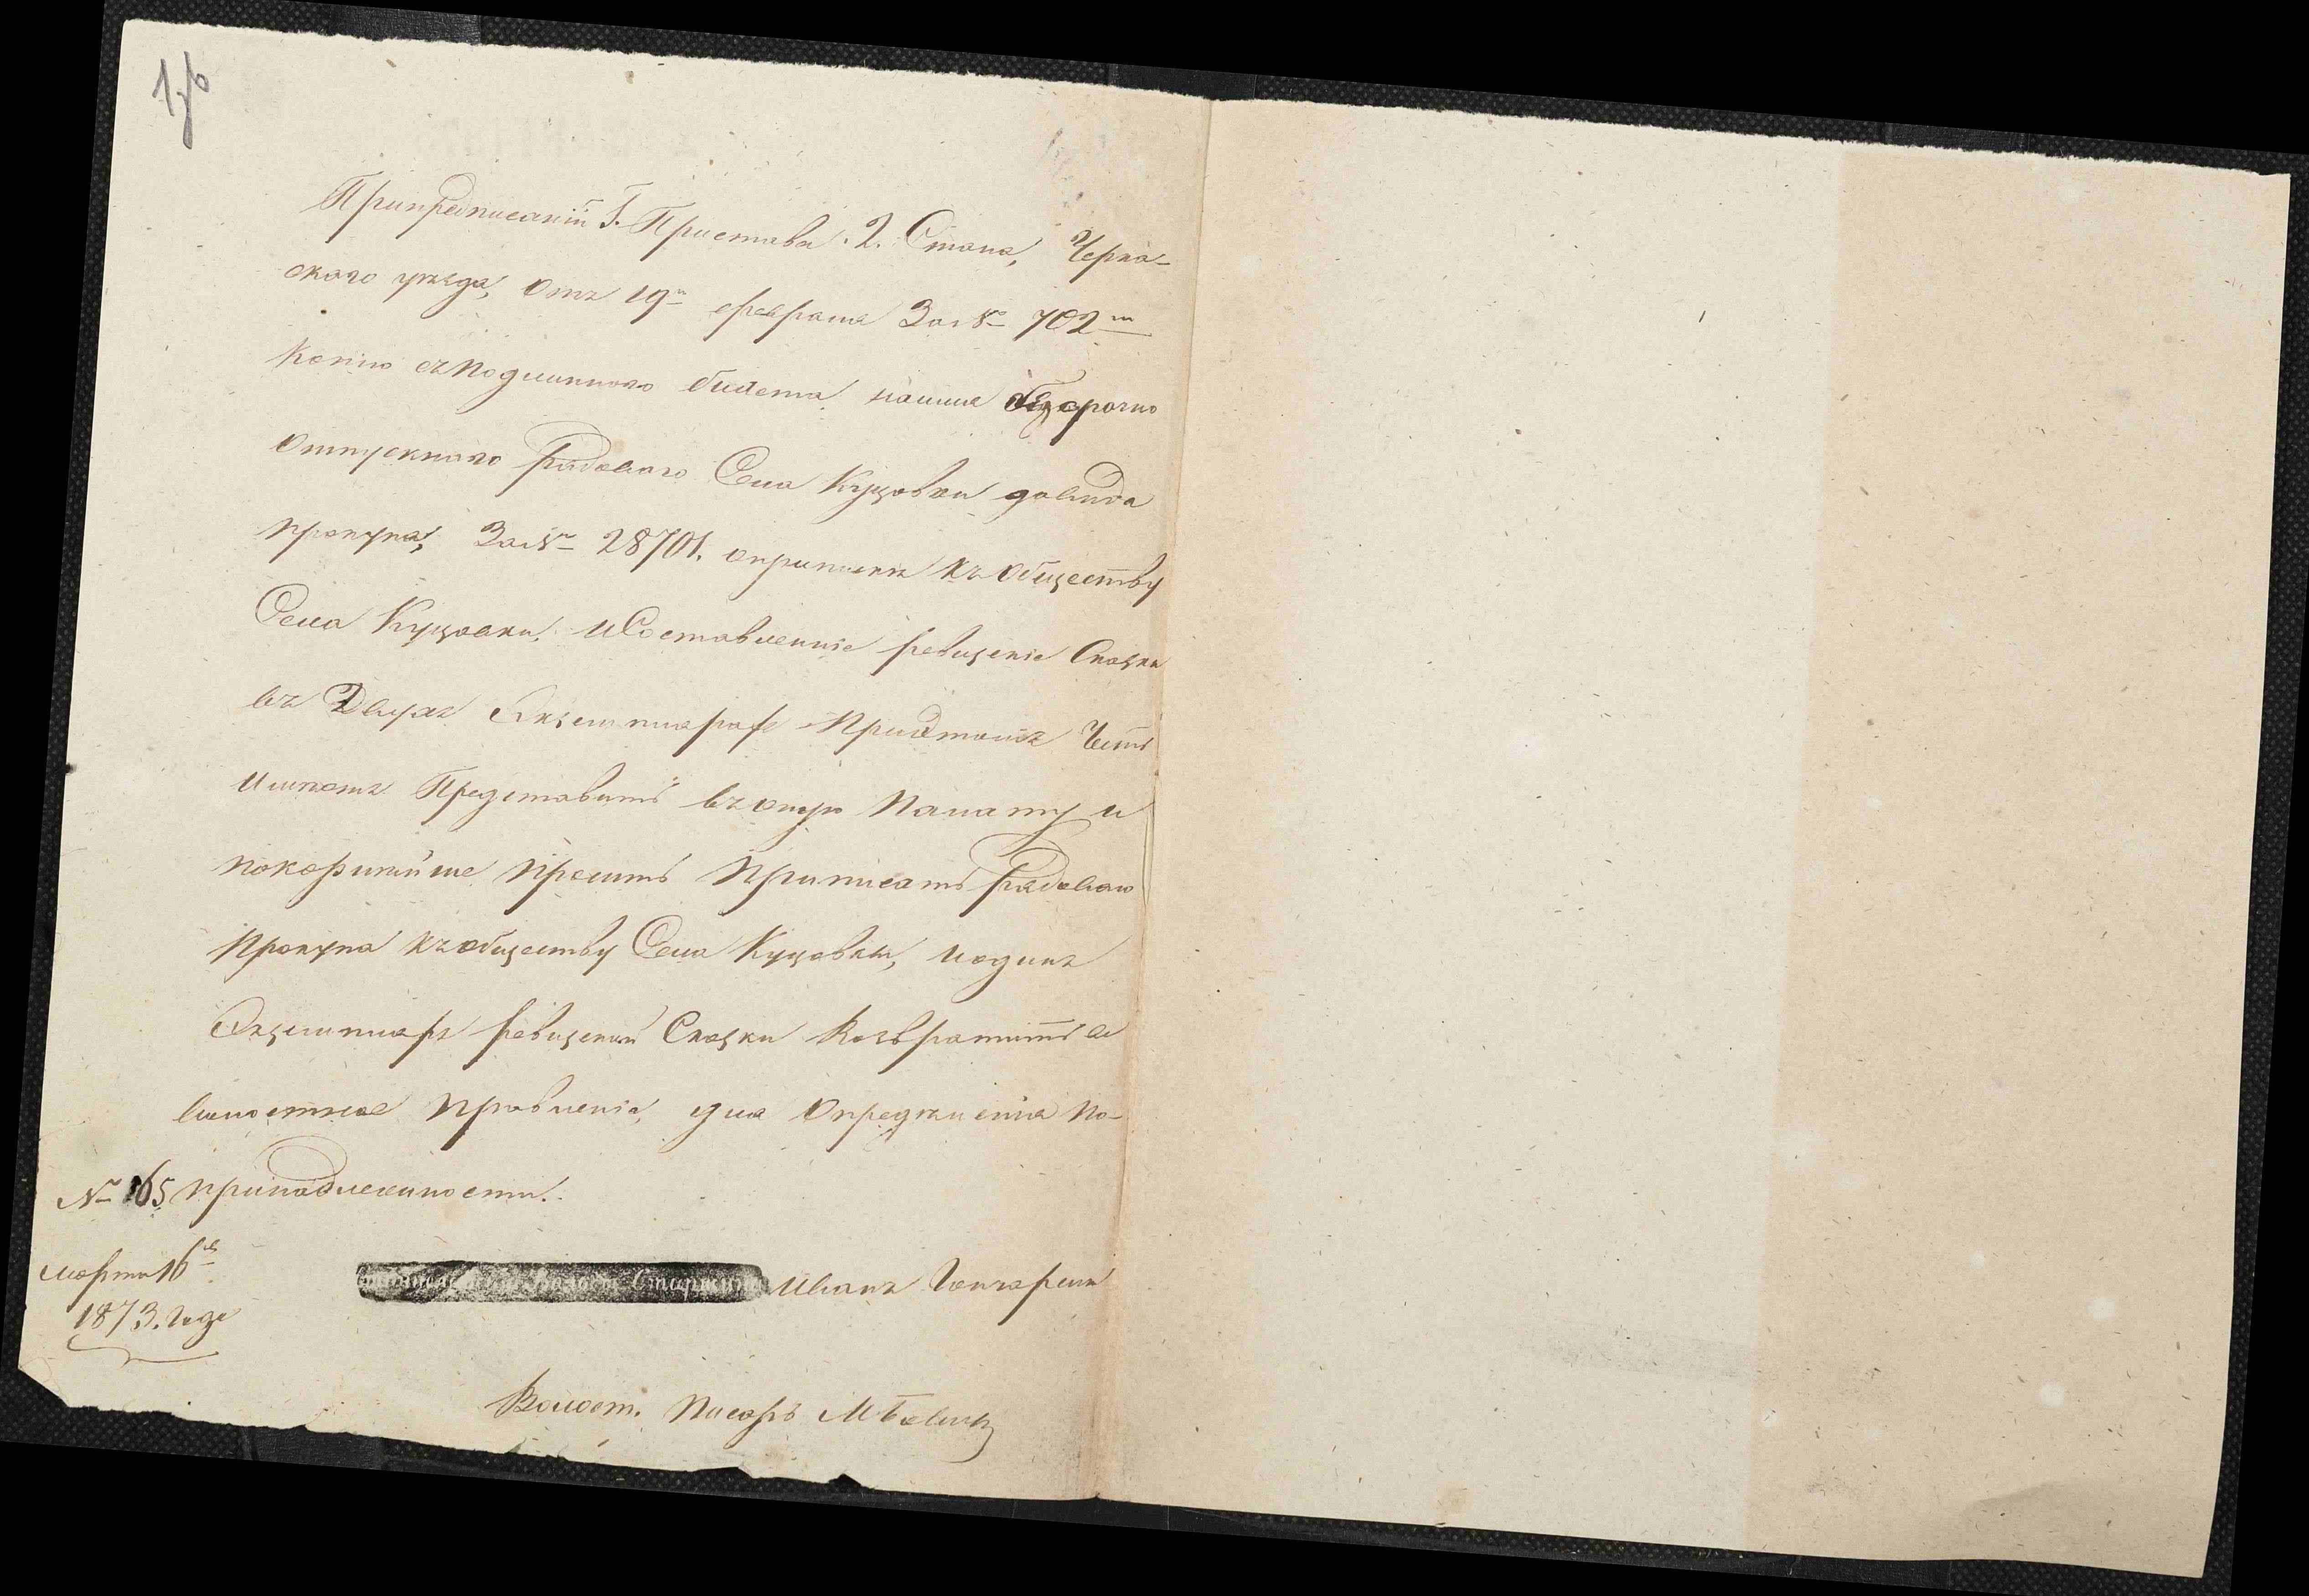 При предписаніи Г. Пристава 2. Стана, Черка-
скаго уѣзда, отъ 19го февраля За № 702м
Копію съ подлиннаго билета на имя безсрочно
отпускнаго рядоваго Села Куцовки давида
прокупа, За № 28701. о припискѣ къ обществу
Села Куцовки, и Составленніе ревизскіе Сказки
въ Двухъ Екземплярахъ при этомъ Честь
имѣетъ Представить въ оную палату и
покорнѣйше просить приписать рядоваго
прокупа къ обществу Села Куцовки, и одинъ
Экземпляръ ревизской Сказки Возвратить въ
волостное правленіе, для опредѣленія по-
№ 165 принадлежности.
марта 16го
1873. Года
Старшина Иванъ Гончаренк
Волост. Писарь